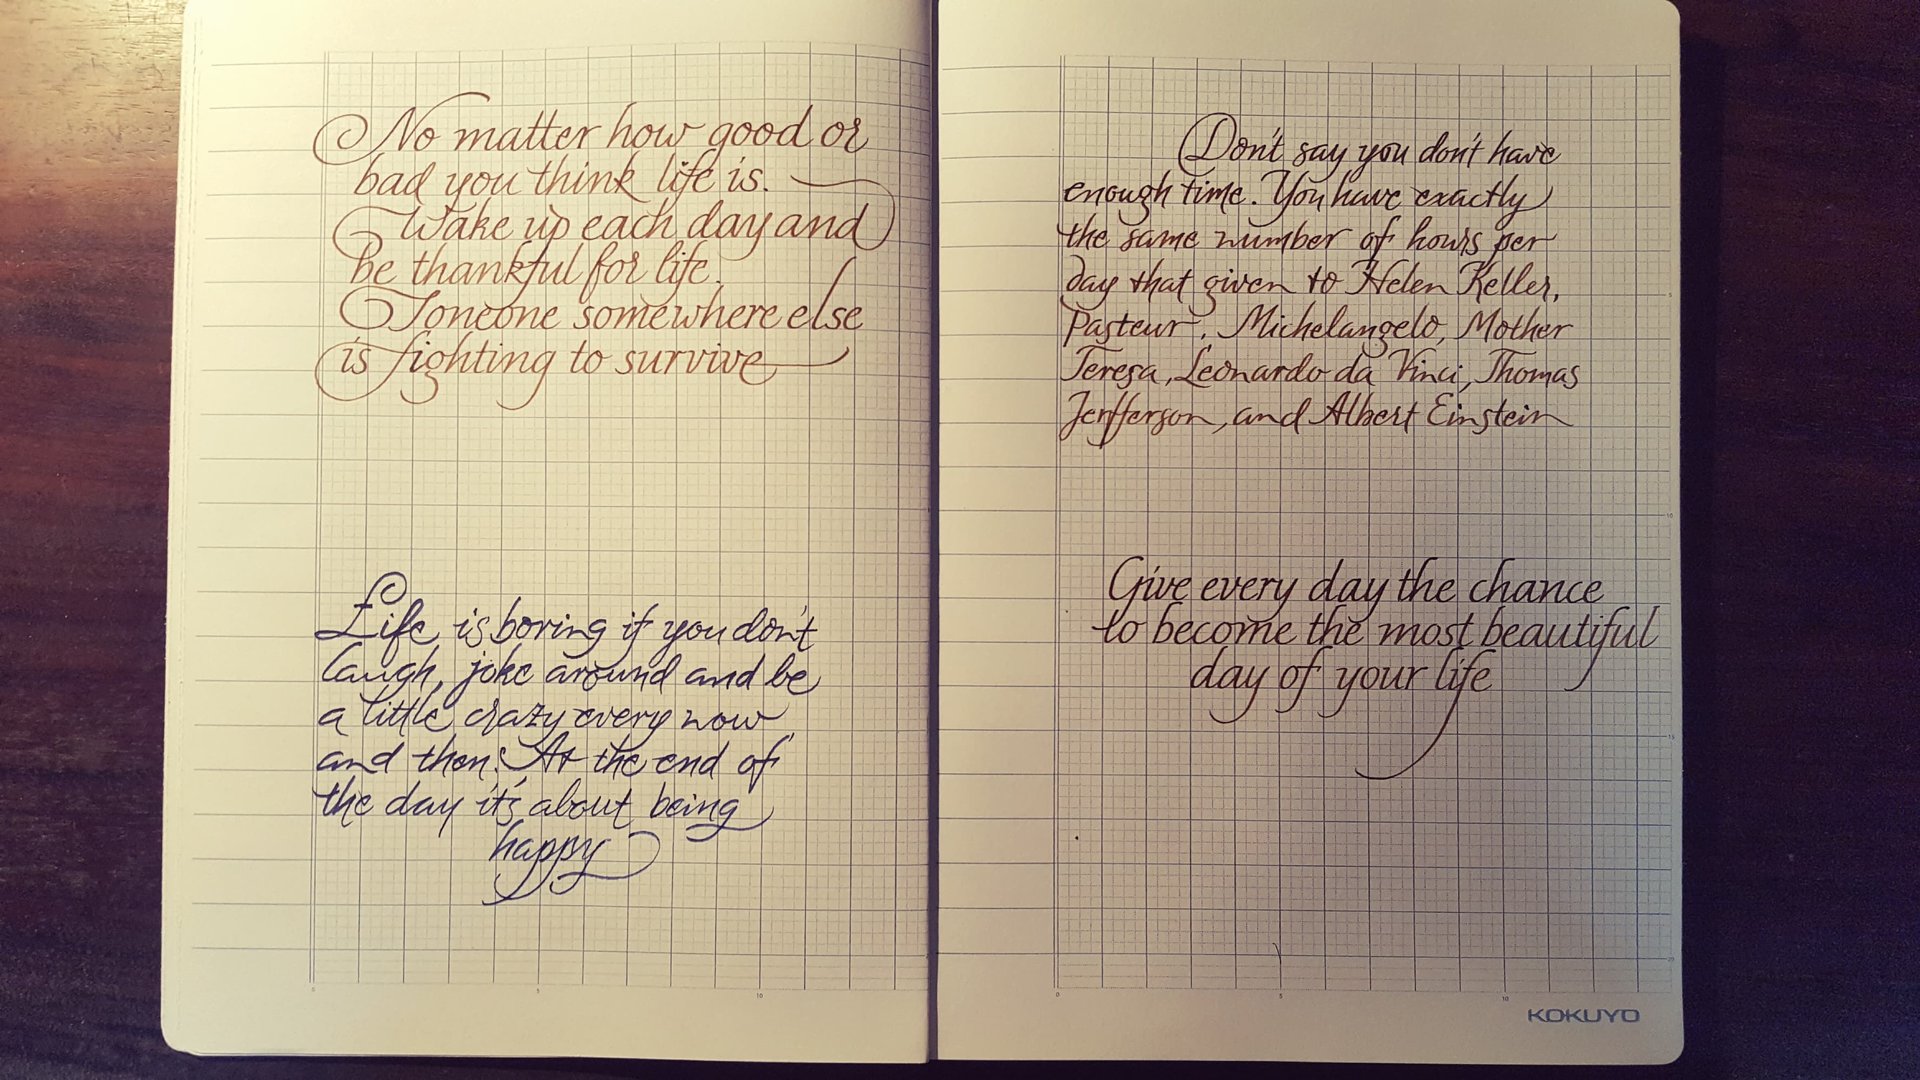 No matter how good or
bad you think life is.
Wake up each day and
be thankful for life.
Soneone somewhere else
is fighting to survive
Life is boring if you don't
laugh, joke around and be
a little crazy every now
and then. At the end of
the day it's about being
happy
Don't say you don't have
enough time. You have exactly
the same number of hours per
day that given to Helen Keller,
Pasteur, Michelangelo, Mother
Teresa, Leonardo da Vinci, Thomas
Jerfferson, and Albert Einstein
Give every day the chance
to become the most beautiful
day of your life
0 5 10
5
10
15
20
0 5 10
KOKUYO